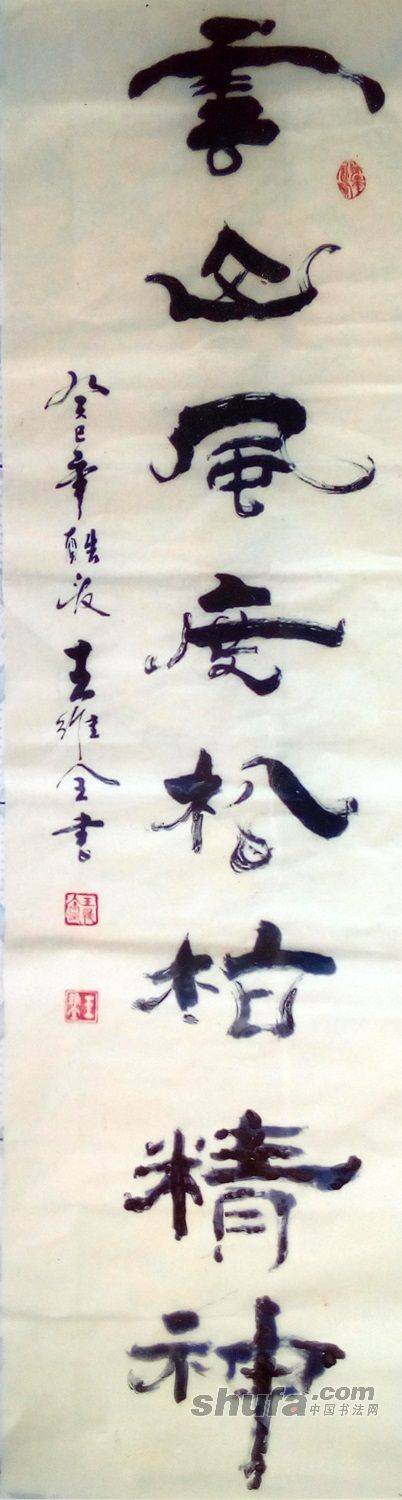 雲山風度松柏精神
癸巳年 王維全書
shufa.com
中国书法网